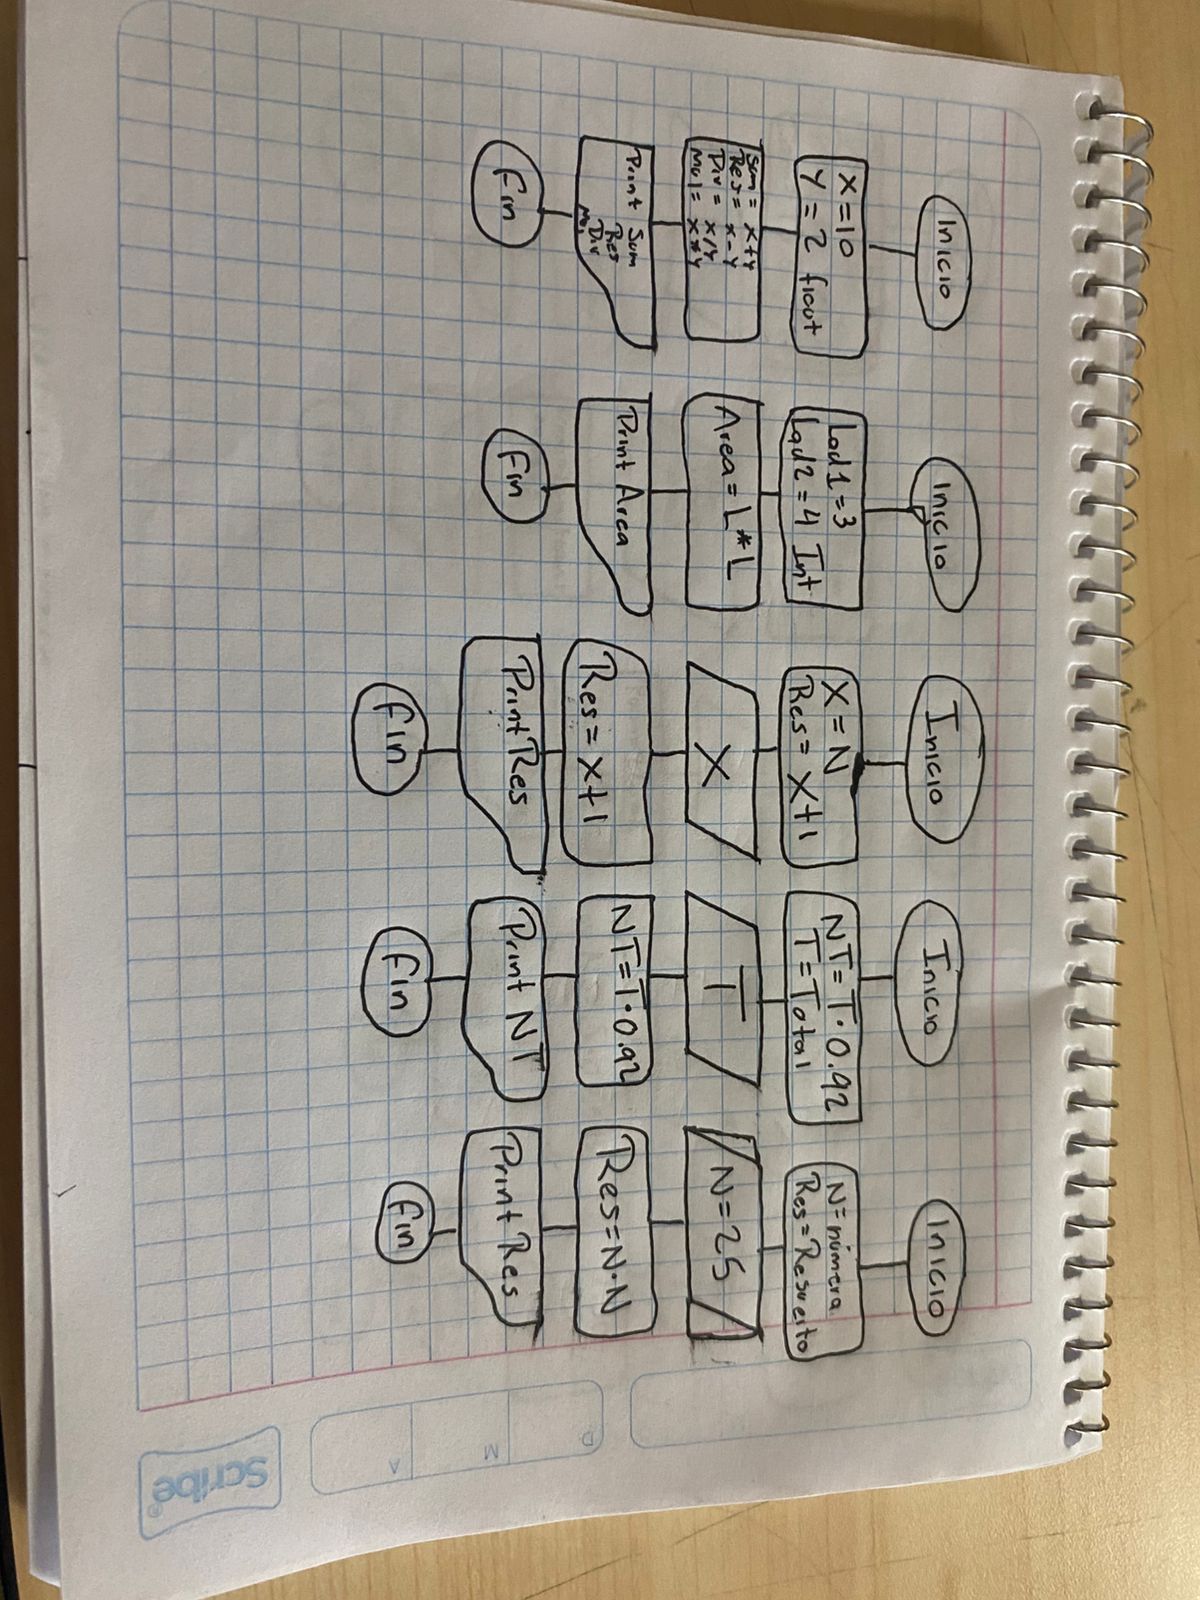 Inicio
X=10
Y=2 float
Sum= x+y
Res= x-y
Div= x/y
Mul= x*y
Print Sum
Res
Div
Mul
Fin
Inicio
Lad1=3
Lad2=4 Int
Area=L*L
Print Area
Fin
Inicio
X=N
Res=X+1
X
Res=X+1
Print Res
Fin
Inicio
NT=T·0.92
T=Total
T
NT=T·0.92
Print NT
Fin
Inicio
N=número
Res=Resuelto
N=25
Res=N·N
Print Res
Fin
D
M
A
Scribe